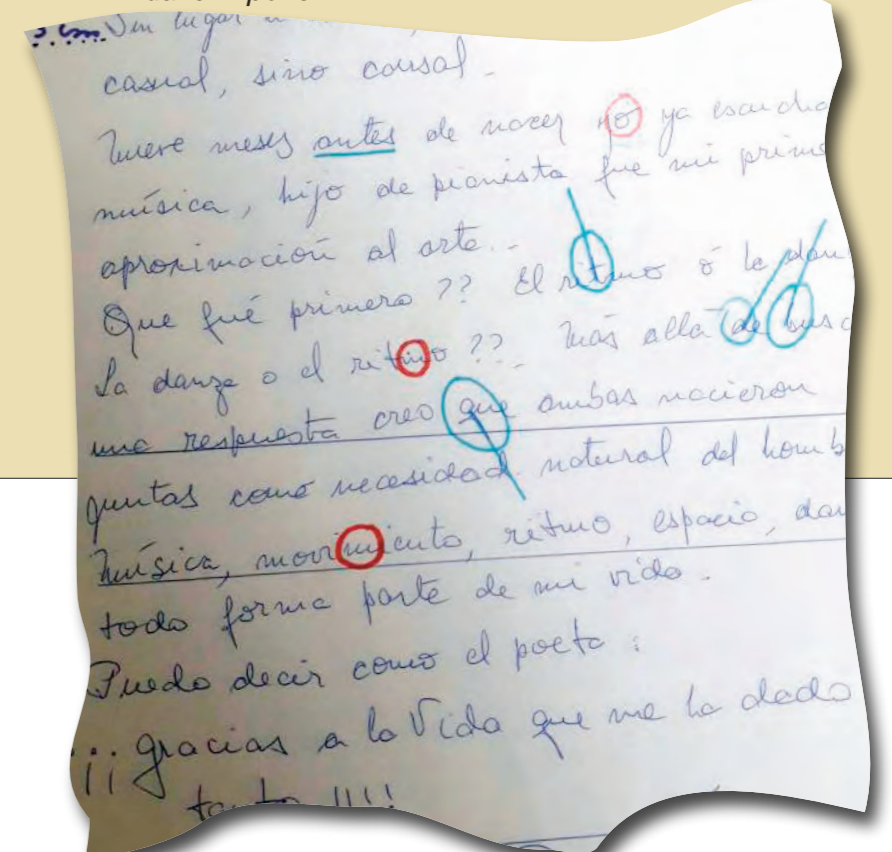 lugar
casual, sino causal.
Nueve meses antes de nacer yo ya escucha
música, hijo de pianista fue mi prime
aproximación al arte..
Que fué primero ?? El ritmo ó la dan
La danza o el ritmo ?? Más allá de busc
una respuesta creo que ambas nacieron
juntas como necesidad natural del homb
Música, movimiento, ritmo, espacio, dan
todo forma parte de mi vida.
Puedo decir como el poeta :
¡¡¡ gracias a la Vida que me ha dado
tanto !!!!